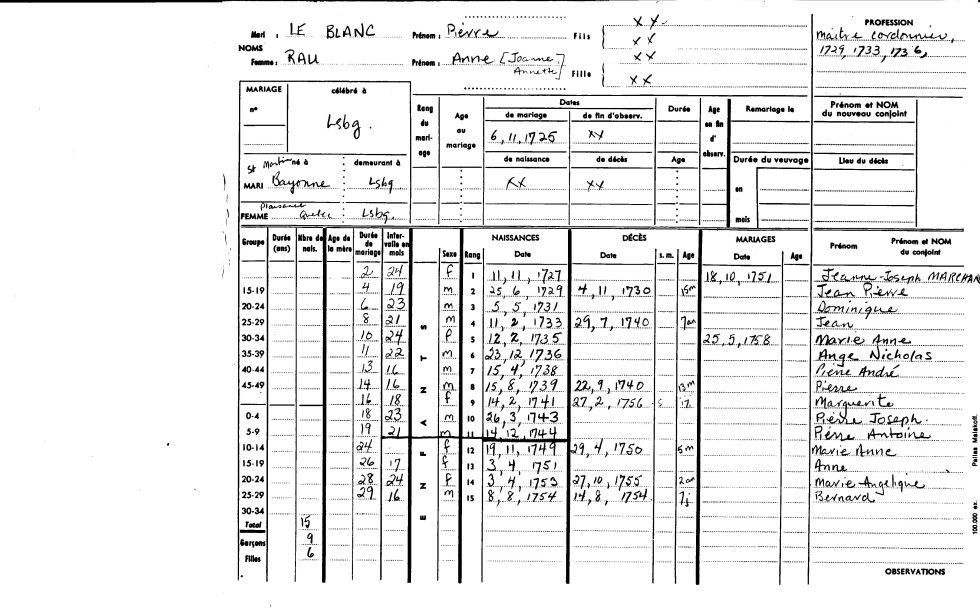 PROFESSION
Mari : LE BLANC Prénom : Pierre Fils { XX
XX
maitre cordonnier,
1729, 1733, 1736,
NOMS
Femme : RAU Prénom : Anne [Joanne-] Annette] Fille { XX
XX
MARIAGE célébré à
n°
Lsbg.
Rang du mariage Age au mariage Dates Durée Age en fin d' observ. Remariage le Prénom et NOM du nouveau conjoint
de mariage de fin d'observ.
6, 11, 1725 XX
de naissance de décès Age Durée du veuvage Lieu du décès
XX XX en
mois
St Martin né à demeurant à
MARI Bayonne Lsbg.
Plaisance
FEMME Quebec Lsbg.
Groupe Durée (ans) Nbre de nais. Age de la mère Durée de mariage Intervalle en mois ENFANTS Sexe Rang NAISSANCES Date DÉCÈS Date s. m. Age MARIAGES Date Age Prénom Prénom et NOM du conjoint
2 24 f 1 11, 11, 1727 18, 10, 1751 Jeanne-Joseph MARCHAN
15-19 4 19 m 2 25, 6, 1729 4, 11, 1730 15m Jean Pierre
20-24 6 23 m 3 5, 5, 1731 Dominique
25-29 8 21 m 4 11, 2, 1733 29, 7, 1740 7an Jean
30-34 10 24 f 5 12, 2, 1735 25, 5, 1758 Marie Anne
35-39 11 22 m 6 23, 12, 1736 Ange Nicholas
40-44 13 16 m 7 15, 4, 1738 Pierre André
45-49 14 16 m 8 15, 8, 1739 22, 9, 1740 13m Pierre
16 18 f 9 14, 2, 1741 27, 2, 1756 s Marguerite
0-4 18 23 m 10 26, 3, 1743 Pierre Joseph.
5-9 19 21 m 11 14, 12, 1744 Pierre Antoine
10-14 24 f 12 19, 11, 1749 29, 4, 1750 5m Marie Anne
15-19 26 17 f 13 3, 4, 1751 Anne
20-24 28 24 f 14 3, 4, 1753 27, 10, 1755 2an Marie Angelique
25-29 29 16 m 15 8, 8, 1754 14, 8, 1754 7j Bernard
30-34
Total 15
Garçons 9
Filles 6
OBSERVATIONS
100.000 ex. Pallas Malakoff.